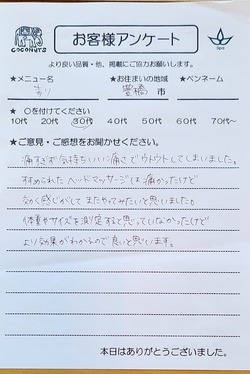 COCONUTS
お客様アンケート
Spa
より良い品質・他、掲載にご協力お願いします。
★メニュー名 ★お住まいの地域 ★ペンネーム
豊橋 市
★ ○を付けてください
10代 20代 30代 40代 50代 60代 70代～
★ご意見・ご感想をお聞かせください。
痛すぎず気持ちいい痛さでウトウトしてしまいました。
すすめられたヘッドマッサージは痛かったけど
効く感じがしてまたやってみたいと思いました。
体重やサイズを測定すると思っていなかったけど
より効果がわかるので良いと思います。
本日はありがとうございました。